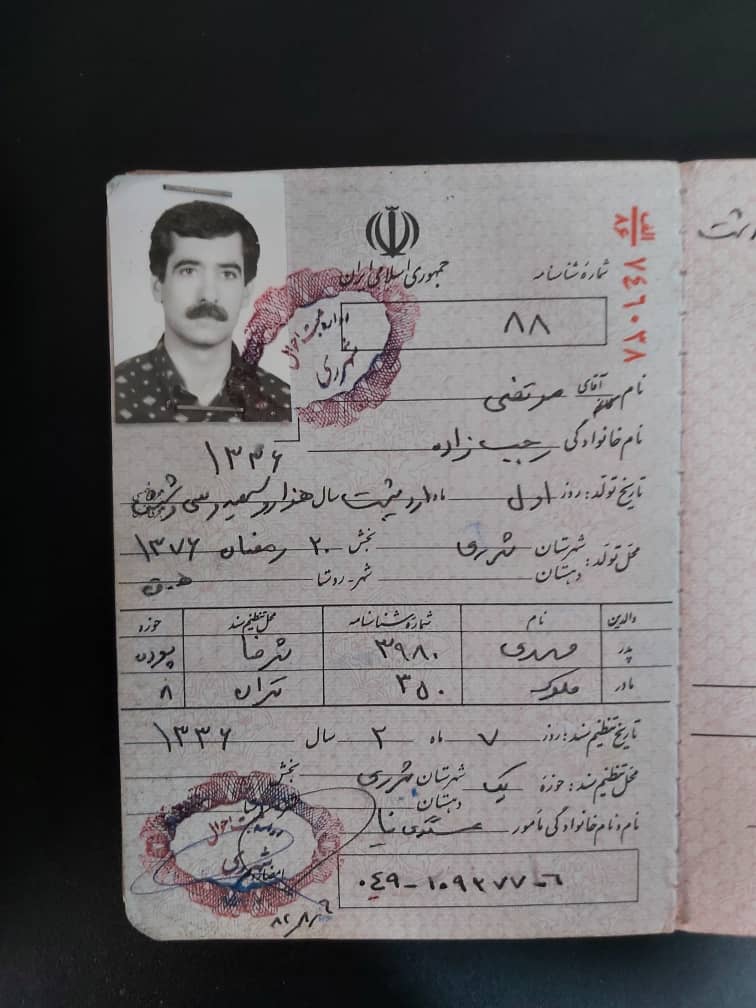 جمهوری اسلامی ایران
شماره شناسنامه
۸۸
الف
۶۷
۸۴۶۰۳۸
اداره ثبت احوال
شهرری
نام آقای مرتضی
نام خانوادگی رجب زاده
۱۳۳۶
تاریخ تولد: روز اول ماه اردیبهشت سال هزار و سیصد و سی و شش
محل تولد: شهرستان شهرری بخش ۲۰ رمضان ۱۳۷۶
دهستان شهر-روستا
والدین نام شماره شناسنامه محل تنظیم سند حوزه
پدر مهدی ۳۹۸۰ شهرضا پوده
مادر ملوک ۳۵۰ تهران ۸
تاریخ تنظیم سند: روز ۷ ماه ۲ سال ۱۳۳۶
محل تنظیم سند: حوزه یک شهرستان شهرری بخش
دهستان
نام و نام خانوادگی مأمور
۰۴۹-۱۰۹۳۷۷-۶
ثبت احوال
شهرری